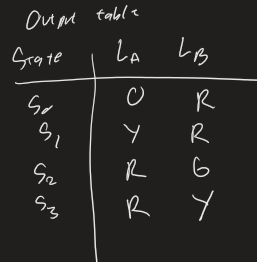 Output table
State LA LB
S0 G R
S1 Y R
S2 R G
S3 R Y